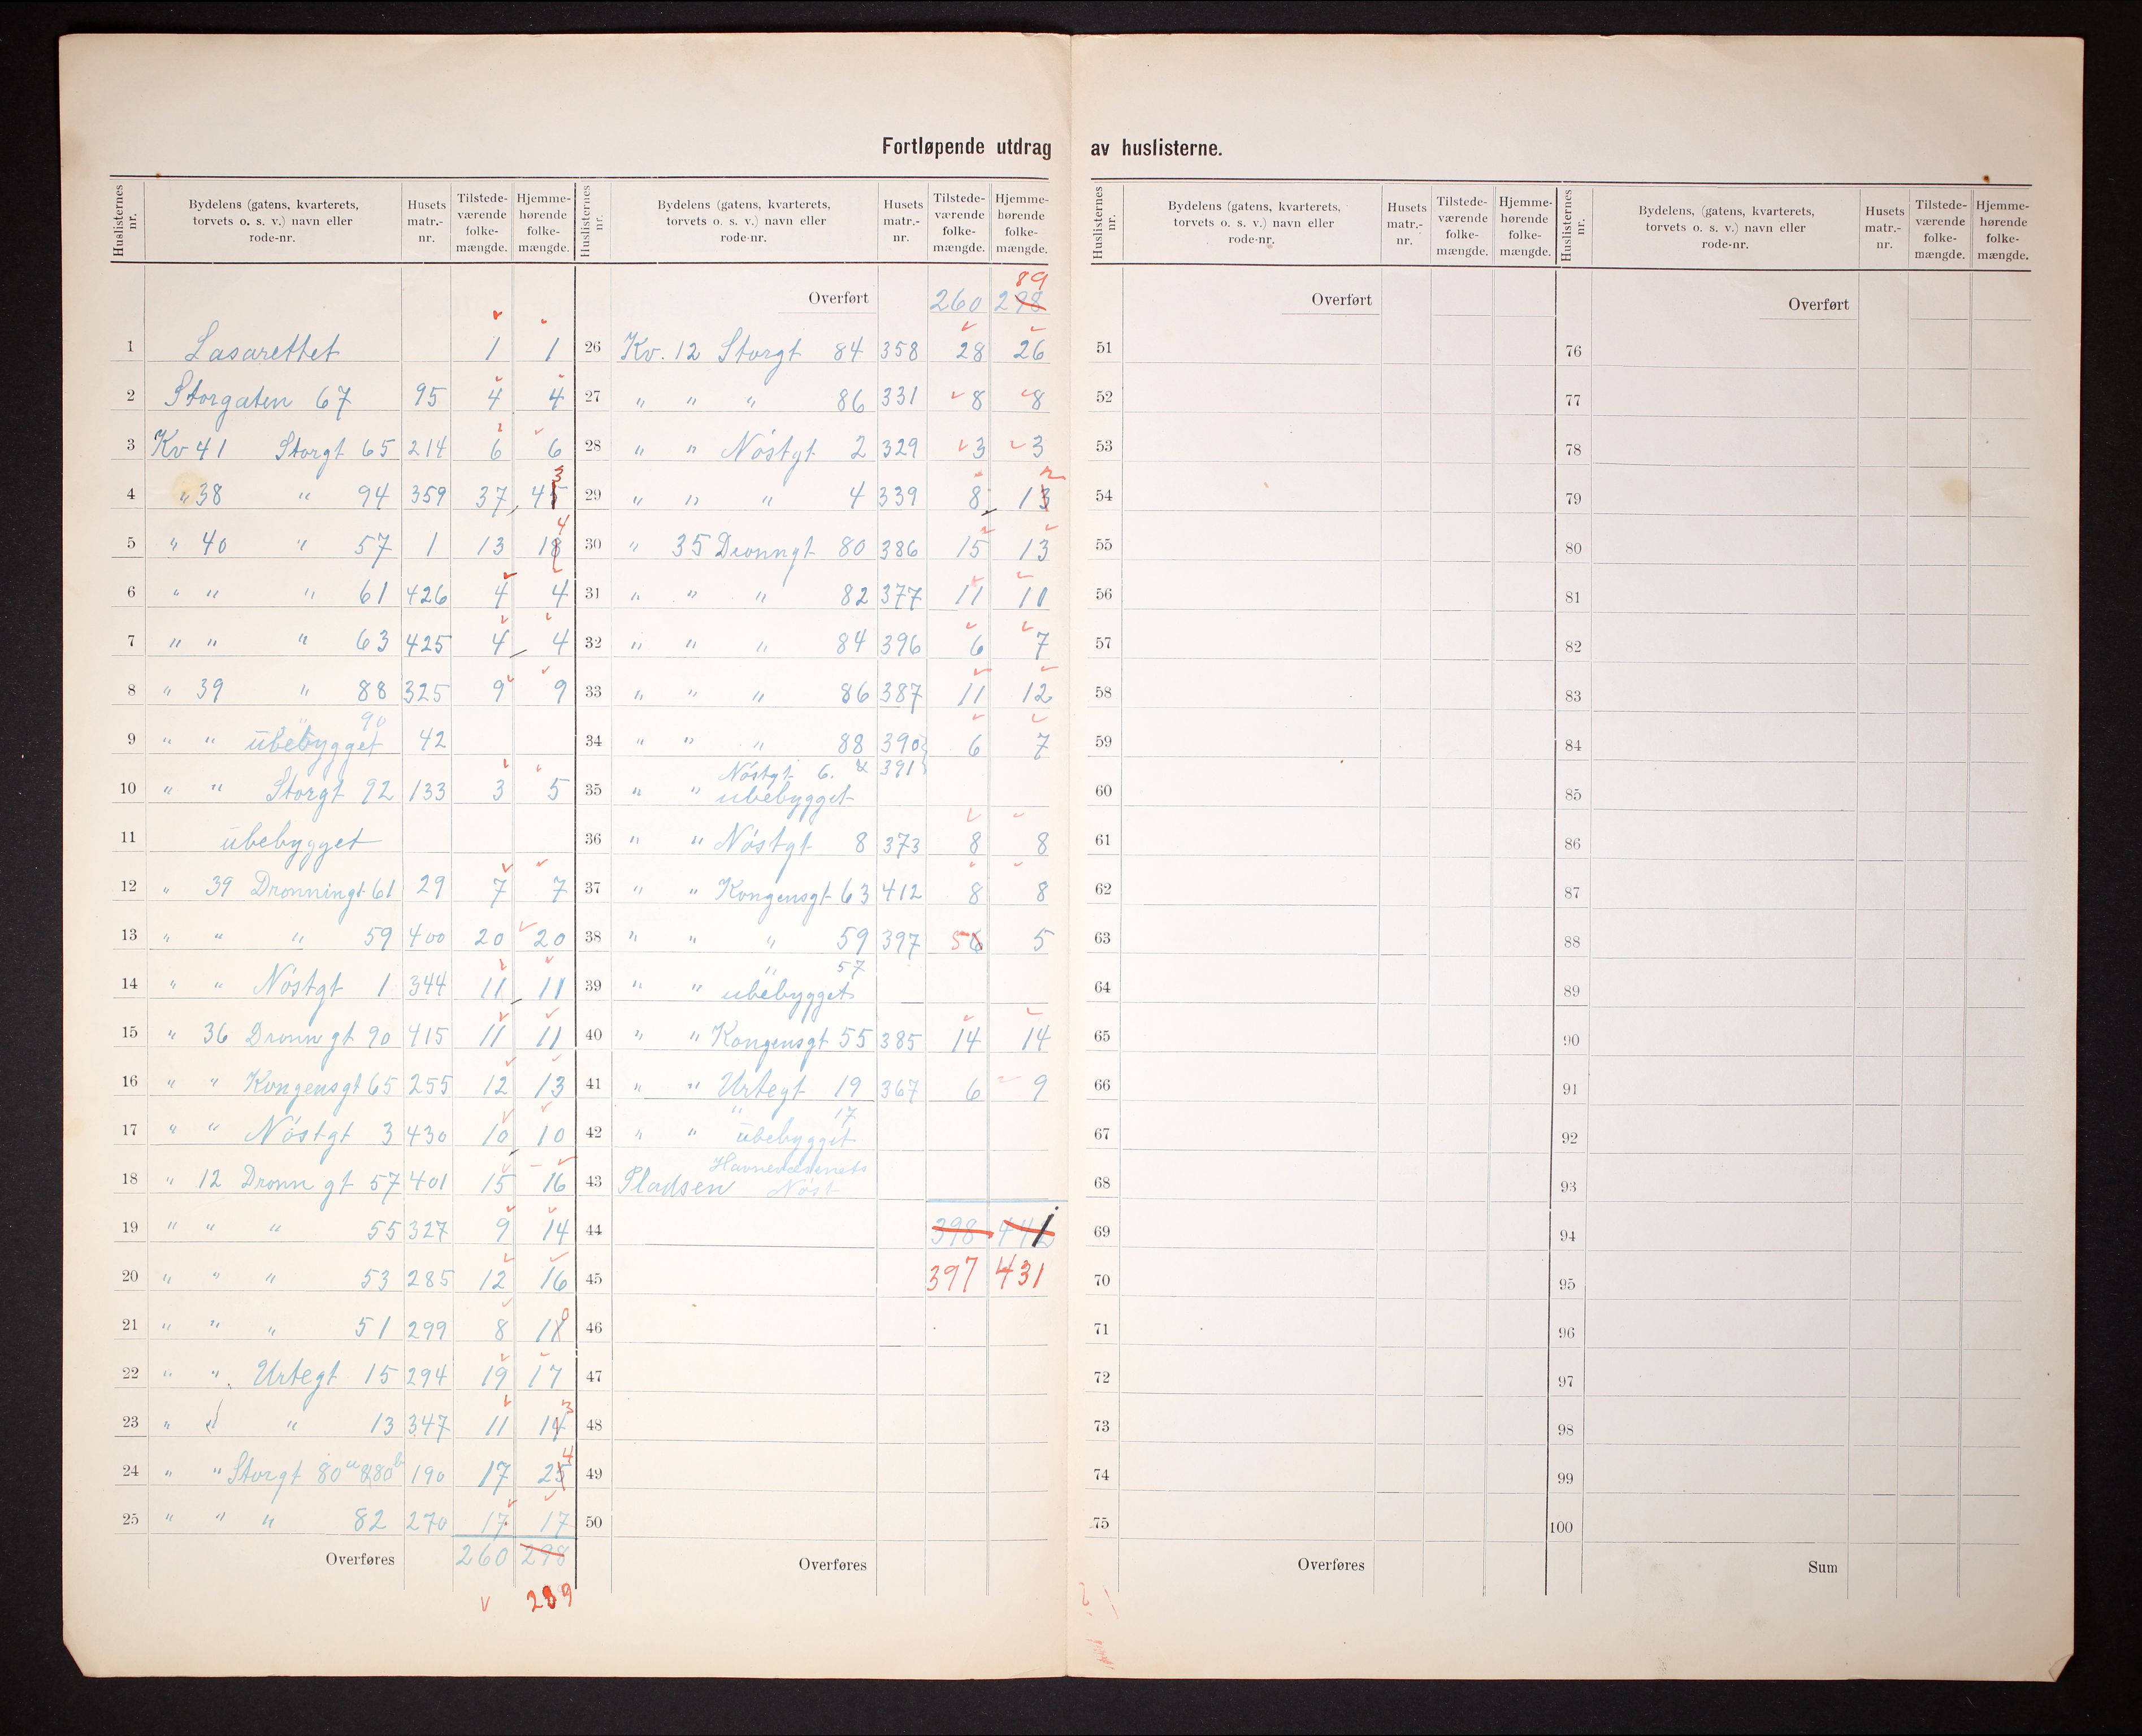 Fortløpende utdrag av huslisterne.
Huslisternes nr. Bydelens (gatens, kvarterets, torvets o. s. v.) navn eller rode-nr. Husets matr.-nr. Tilstedeværende folkemængde. Hjemmehørende folkemængde.
1 Lasarettet 1 1
2 Storgaten 67 95 4 4
3 Kv 41 Storgt 65 214 6 6
4 " 38 " 94 359 37 45 3
5 " 40 " 57 1 13 18 4
6 " " " 61 426 4 4
7 " " " 63 425 4 4
8 " 39 " 88 325 9 9
9 " " " 90 ubebygget 42
10 " " Storgt 92 133 3 5
11 ubebygget
12 " 39 Dronningt 61 29 7 7
13 " " " 59 400 20 20
14 " " Nøstgt 1 344 11 11
15 " 36 Dronn gt 90 415 11 11
16 " " Kongensgt 65 255 12 13
17 " " Nøstgt 3 430 10 10
18 " 12 Dronn gt 57 401 15 16
19 " " " 55 327 9 14
20 " " " 53 285 12 16
21 " " " 51 299 8 18 0
22 " " Urtegt 15 294 19 17
23 " " " 13 347 11 14 3
24 " " Storgt 80a & 80b 190 17 25 4
25 " " " 82 270 17 17
Overføres 260 298
289
Huslisternes nr. Bydelens (gatens, kvarterets, torvets o. s. v.) navn eller rode-nr. Husets matr.-nr. Tilstedeværende folkemængde. Hjemmehørende folkemængde.
89
Overført 260 298
26 Kv. 12 Storgt 84 358 28 26
27 " " " 86 331 8 8
28 " " Nøstgt 2 329 3 3
29 " " " 4 339 8 13 2
30 " 35 Dronngt 80 386 15 13
31 " " " 82 377 11 10
32 " " " 84 396 6 7
33 " " " 86 387 11 12
34 " " " 88 390 6 7
35 " " Nøstgt 6. & 391 ubebygget
36 " " Nøstgt 8 373 8 8
37 " " Kongensgt 63 412 8 8
38 " " " 59 397 5 6 5
39 " " " 57 ubebygget
40 " " Kongensgt 55 385 14 14
41 " " Urtegt 19 367 6 9
42 " " " 17 ubebygget
43 Pladsen Havnevæsenets Nøst
44 398 442
45 397 431
46
47
48
49
50
Overføres
Huslisternes nr. Bydelens (gatens, kvarterets, torvets o. s. v.) navn eller rode-nr. Husets matr.-nr. Tilstedeværende folkemængde. Hjemmehørende folkemængde.
Overført
51
52
53
54
55
56
57
58
59
60
61
62
63
64
65
66
67
68
69
70
71
72
73
74
75
Overføres
Huslisternes nr. Bydelens, (gatens, kvarterets, torvets o. s. v.) navn eller rode-nr. Husets matr.-nr. Tilstedeværende folkemængde. Hjemmehørende folkemængde.
Overført
76
77
78
79
80
81
82
83
84
85
86
87
88
89
90
91
92
93
94
95
96
97
98
99
100
Sum